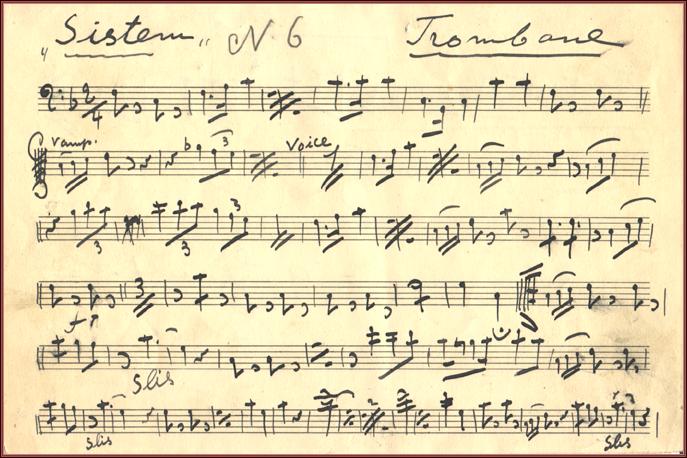 „Sistem„ N 6 Trombone
2/4
Vamp. 3 Voice
3 3
3
Slis
Slis Slis